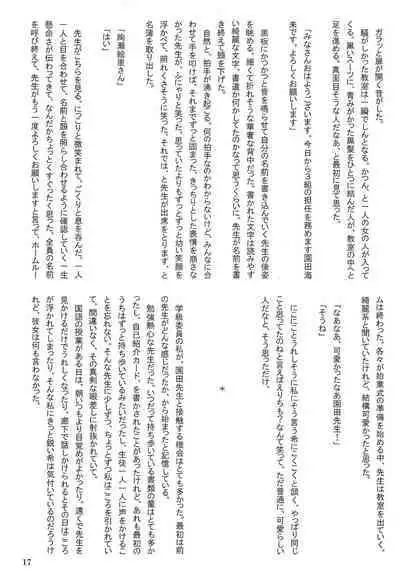 ガラッと扉が開く音がした。
騒がしかった教室は一瞬でしんとなる。かつん、と一人の女の人が入って
くる。黒いスーツに、青みがかった黒髪をひとつに結んだ人が、教室の中へと
足を進める。真面目そうな人だなあ、と最初に見て思った。
「みなさんおはようございます。今日から3組の担任を務めます園田海
未です。よろしくお願いします」
黒板にかつかつと音を鳴らせて自分の名前を書き込んでいく先生の後姿
を眺める。細くて折れそうな華奢な背中だった。書かれた文字は読みやす
い綺麗な文字。書道か何かしてたのかなって思うくらいに。先生が名前を書
き終えて頭を下げた。
自然と、拍手が湧き起こる。何の拍手なのかわからないけど、みんなに合
わせて手を叩けば、それまでずっと固まった、きっちりとした表情を崩さな
かった先生が、ふにゃりと笑った。思っていたよりもずっとずっと幼い笑顔を
浮かべて、照れくさそうに笑った。それでは、と先生が出席をとります、と
名簿を取り出した。
「絢瀬絵里さん」
「はい」
先生がこちらを見る。にこりと微笑まれて、ごくりと息を呑んだ。一人
一人と目を合わせて、名前と顔を照らし合わせるように確認していく一生
懸命さが伝わってきて、なんだかちょっとくすぐったく思った。全員の名前
を呼び終えて、先生がもう一度よろしくお願いしますと言って、ホームルー
ムは終わった。各々が始業式の準備を始める中、先生は教室を出ていく。
綺麗系と聞いていたけれど、結構可愛かったと思った。
「なあなあ、可愛かったなあ園田先生！」
「そうね」
にこにこうれしそうに私にそう言う希にこくこくと頷く。やっぱり同じ
こと思ってたのねと言えばえりちも？なんて笑って、ただ普通に、可愛らしい
人だなと、そう思っただけ。
＊
学級委員の私が、園田先生と接触する機会はとても多かった。最初は前
の先生がどんな感じだったか、から始まったと記憶している。
勉強熱心な先生だった。いつだって持ち歩いている書類の量はとても多か
ったし、自己紹介カード、を書かされたことがあったけれど、あれも最初の
うちはずっと持ち歩いているみたいだったし、生徒一人一人に声をかけるこ
とを忘れない。そんな先生に少しずつ、ちょっとずつ私はこころを引かれてい
て、間違いなく、その真剣な眼差しに射抜かれていて。
国語の授業がある日は、朝いつもより目覚めがよかったり。遠くで先生を
見かけるだけでうれしくなったり、廊下で話しかけられるとその日はこころ
が浮かれてしまったり。そんな私にきっと鋭い希は気付いているのだろうけ
れど、彼女は何も言わなかった。
17